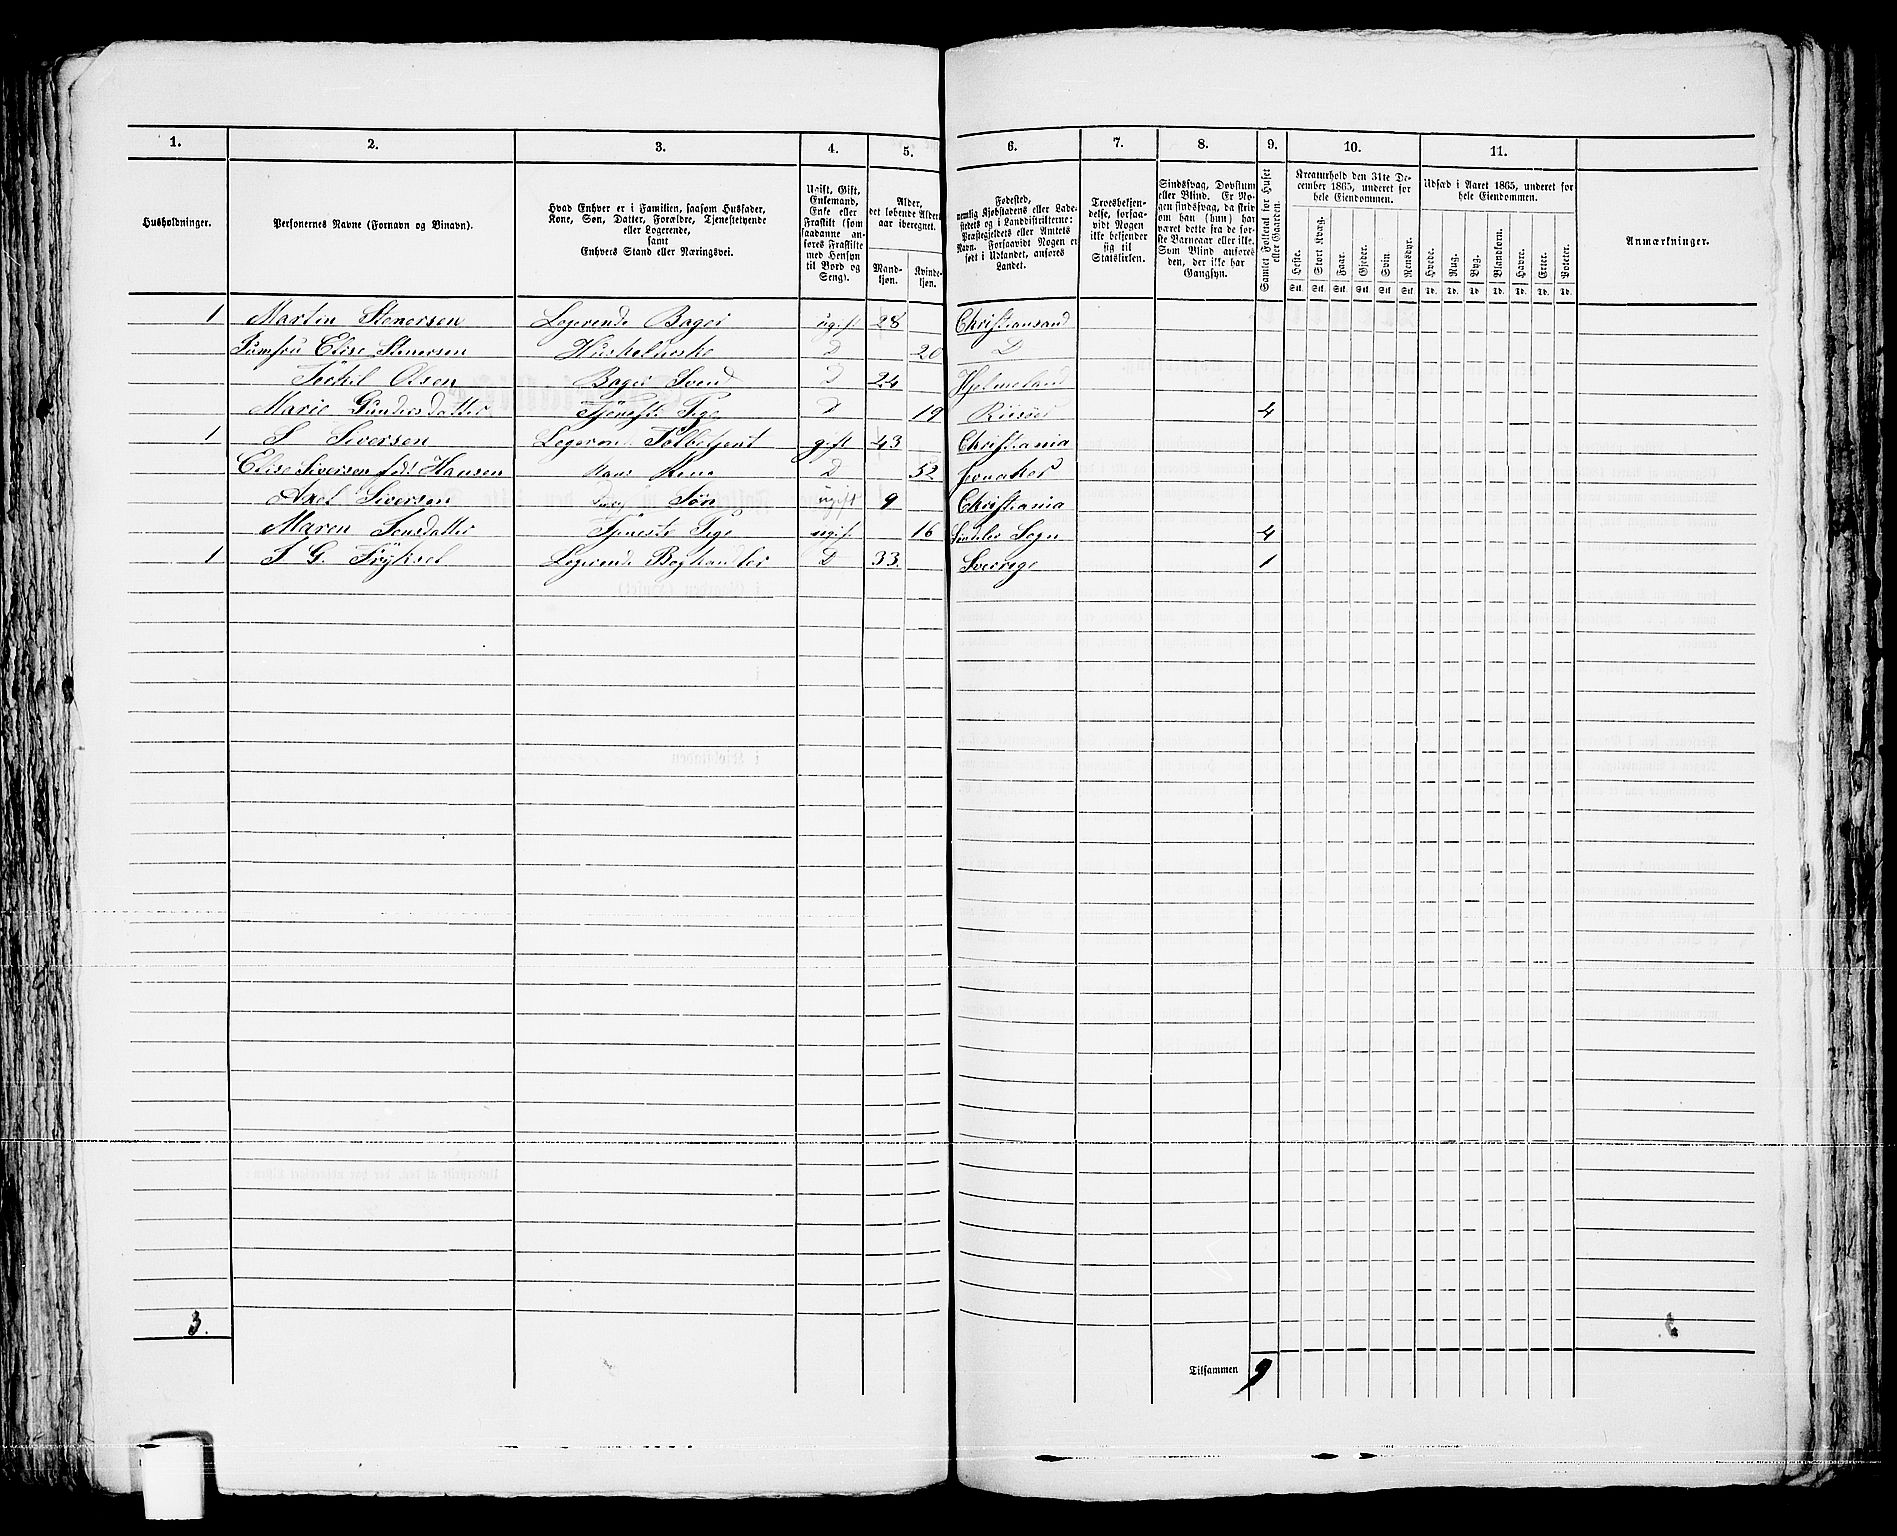 1. 2. 3. 4. 5. 6. 7. 8. 9. 10. 11.
Husholdninger.
Personernes Navne (Fornavn og Binavn).
Hvad Enhver er i Familien, saasom Husfader,
Kone, Søn, Datter, Forældre, Tjenestetyende
eller Logerende,
samt
Enhvers Stand eller Næringsvei.
Ugift, Gift,
Enkemand,
Enke eller
Fraskilt (som
saadanne an-
føres Fraskilte
med Hensyn
til Bord og
Seng).
Alder,
det løbende Alders-
aar iberegnet.
Mand-
kjøn.
Kvinde-
kjøn.
Fødested,
nemlig Kjøbstadens eller Lade-
stedets og i Landdistrikterne:
Præstegjeldets eller Amtets
Navn. Forsaavidt Nogen er
født i Udlandet, anføres
Landet.
Troesbekjen-
delse, forsaa-
vidt Nogen
ikke bekjender
sig til
Statskirken.
Sindssvag, Døvstum
eller Blind. Er No-
gen sindssvag, da skriv
om han (hun) har
været dette fra de før-
ste Barneaar eller ikke.
Som Blind anføres
den, der ikke har
Gangsyn.
Samlet Folketal for Huset
eller Gaarden.
Kreaturhold den 31te De-
cember 1865, underet for
hele Eiendommen.
Heste. Stort Kvæg. Faar. Gjeder. Svin. Rensdyr.
Stk. Stk. Stk. Stk. Stk. Stk.
Udsæd i Aaret 1865, underet for
hele Eiendommen.
Hvede. Rug. Byg. Blandkorn. Havre. Erter. Poteter.
Td. Td. Td. Td. Td. Td. Td.
Anmærkninger.
1 Martin Stenersen Logerende Bager ugift 28 Christiansand
Jomfru Elise Stenersen Husholderske D 20 D
Olsen Bager Svend D 24 Hjelmeland
Marie Gundersdatter Tjeneste Pige D 19 Riisøer 4
1 S Siversen Logerend Tolbetjent gift 43 Christiania
Elise Siversen fød: Hansen Hans Kone D 52 Jevnaker
Axel Siversen Søn ugift 9 Christiania
Maren Jensdatter Tjeneste Pige ugift 16 Sogn 4
1 S G. Fryksel Logerende Boghandler D 33 Sverrige 1
3.
Tilsammen 9